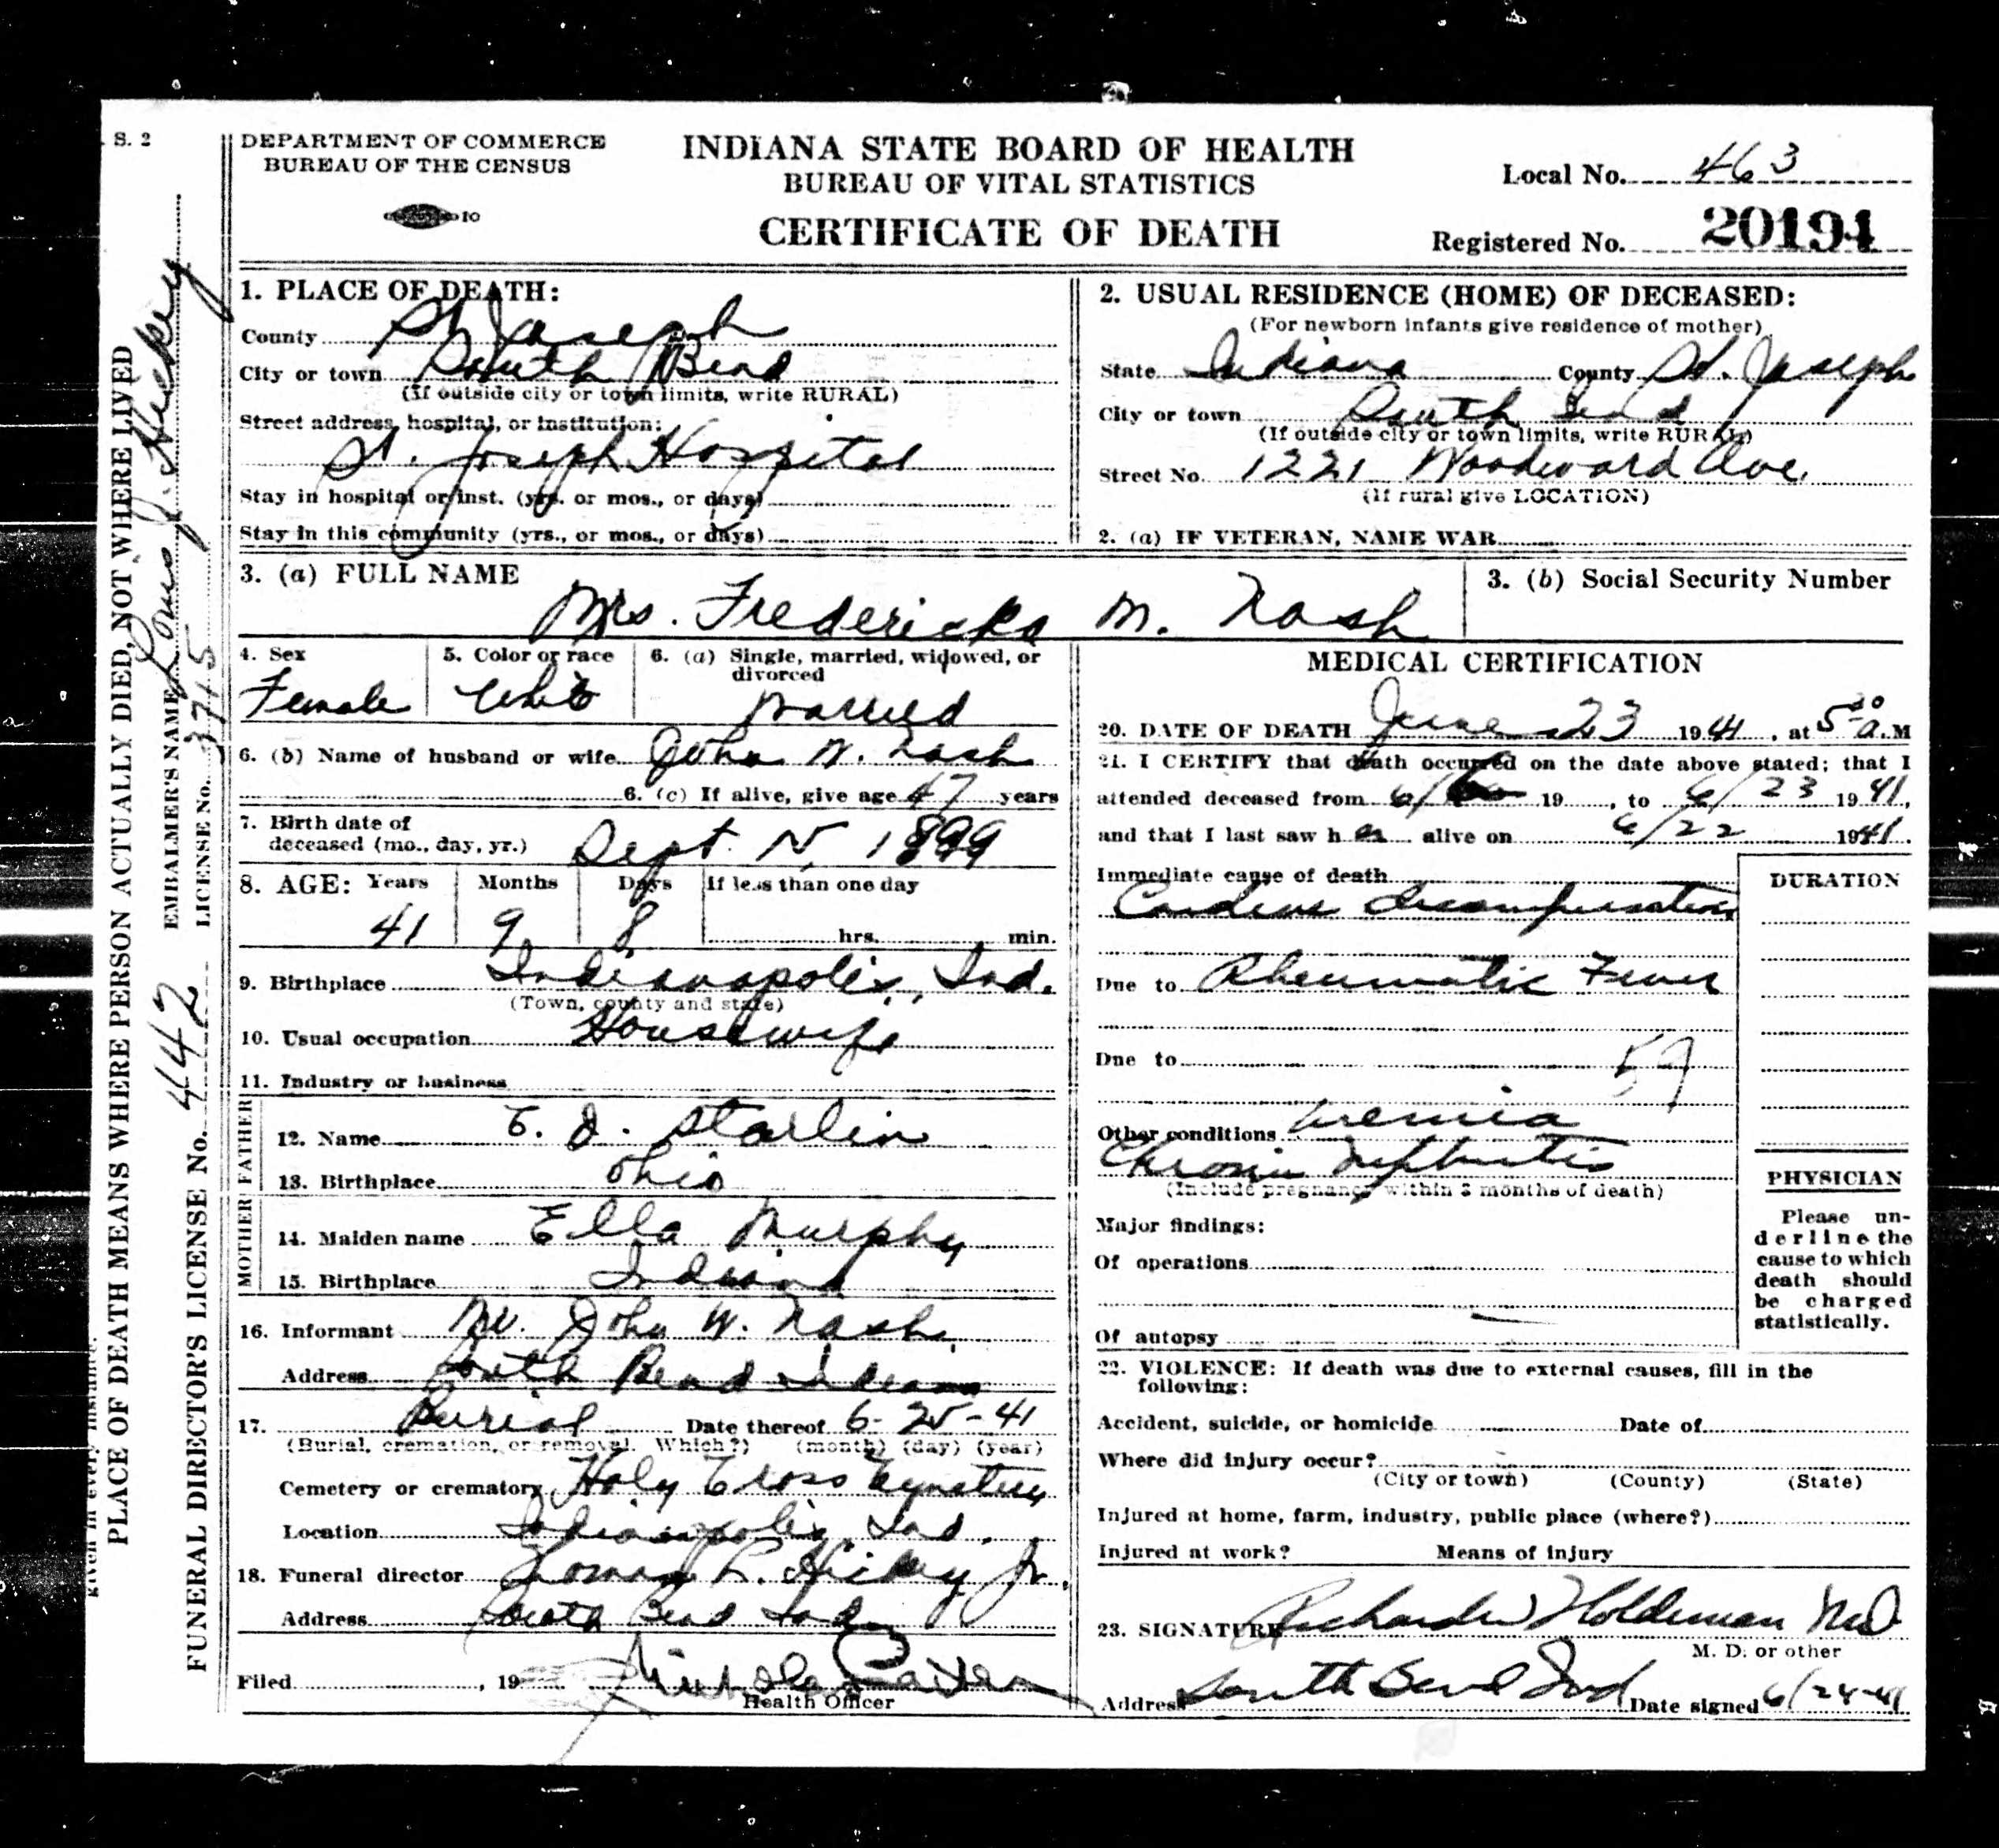 S. 2
DEPARTMENT OF COMMERCE
BUREAU OF THE CENSUS
10
INDIANA STATE BOARD OF HEALTH
BUREAU OF VITAL STATISTICS
CERTIFICATE OF DEATH
Local No. 463
Registered No. 20194
given in every instance.
PLACE OF DEATH MEANS WHERE PERSON ACTUALLY DIED, NOT WHERE LIVED
EMBALMER'S NAME Louis J. Hickey
LICENSE No. 3715
FUNERAL DIRECTOR'S LICENSE No. 442
1. PLACE OF DEATH:
County St Joseph
City or town South Bend
(If outside city or town limits, write RURAL)
Street address, hospital, or institution:
St. Joseph Hospital
Stay in hospital or inst. (yrs. or mos., or days)
Stay in this community (yrs., or mos., or days)
2. USUAL RESIDENCE (HOME) OF DECEASED:
(For newborn infants give residence of mother)
State Indiana County St. Joseph
City or town South Bend
(If outside city or town limits, write RURAL)
Street No. 1221 Woodward Ave.
(If rural give LOCATION)
2. (a) IF VETERAN, NAME WAR
3. (a) FULL NAME Mrs. Fredericka M. Nash
3. (b) Social Security Number
4. Sex Female
5. Color or race White
6. (a) Single, married, widowed, or divorced Married
6. (b) Name of husband or wife John W. Nash
6. (c) If alive, give age 47 years
7. Birth date of
deceased (mo., day, yr.) Sept. 15, 1899
8. AGE: Years Months Days If less than one day
41 9 8 hrs. min.
9. Birthplace Indianapolis, Ind.
(Town, county and state)
10. Usual occupation Housewife
11. Industry or business
FATHER
12. Name E. J. Starlin
13. Birthplace Ohio
MOTHER
14. Maiden name Ella Murphy
15. Birthplace Indiana
16. Informant Mr. John W. Nash
Address South Bend Indiana
17. Burial Date thereof 6-25-41
(Burial, cremation, or removal. Which?) (month) (day) (year)
Cemetery or crematory Holy Cross Cemetery
Location Indianapolis, Ind.
18. Funeral director Thomas L. Hickey Jr.
Address South Bend Ind
Filed , 19
Health Officer
MEDICAL CERTIFICATION
20. DATE OF DEATH June 23 1941, at 5 30 a.M
21. I CERTIFY that death occurred on the date above stated; that I
attended deceased from 6/ 19 , to 6/23 1941,
and that I last saw her alive on 6/22 1941.
Immediate cause of death
Cardiac decompensation
Due to Rheumatic Fever
Due to
59
Other conditions Uremia
Chronic Nephritis
(Include pregnancy within 3 months of death)
Major findings:
Of operations
Of autopsy
DURATION
PHYSICIAN
Please un-
derline the
cause to which
death should
be charged
statistically.
22. VIOLENCE: If death was due to external causes, fill in the
following:
Accident, suicide, or homicide Date of
Where did injury occur?
(City or town) (County) (State)
Injured at home, farm, industry, public place (where?)
Injured at work? Means of injury
23. SIGNATURE Richard Holdeman MD
M. D. or other
Address South Bend Ind Date signed 6/24-41